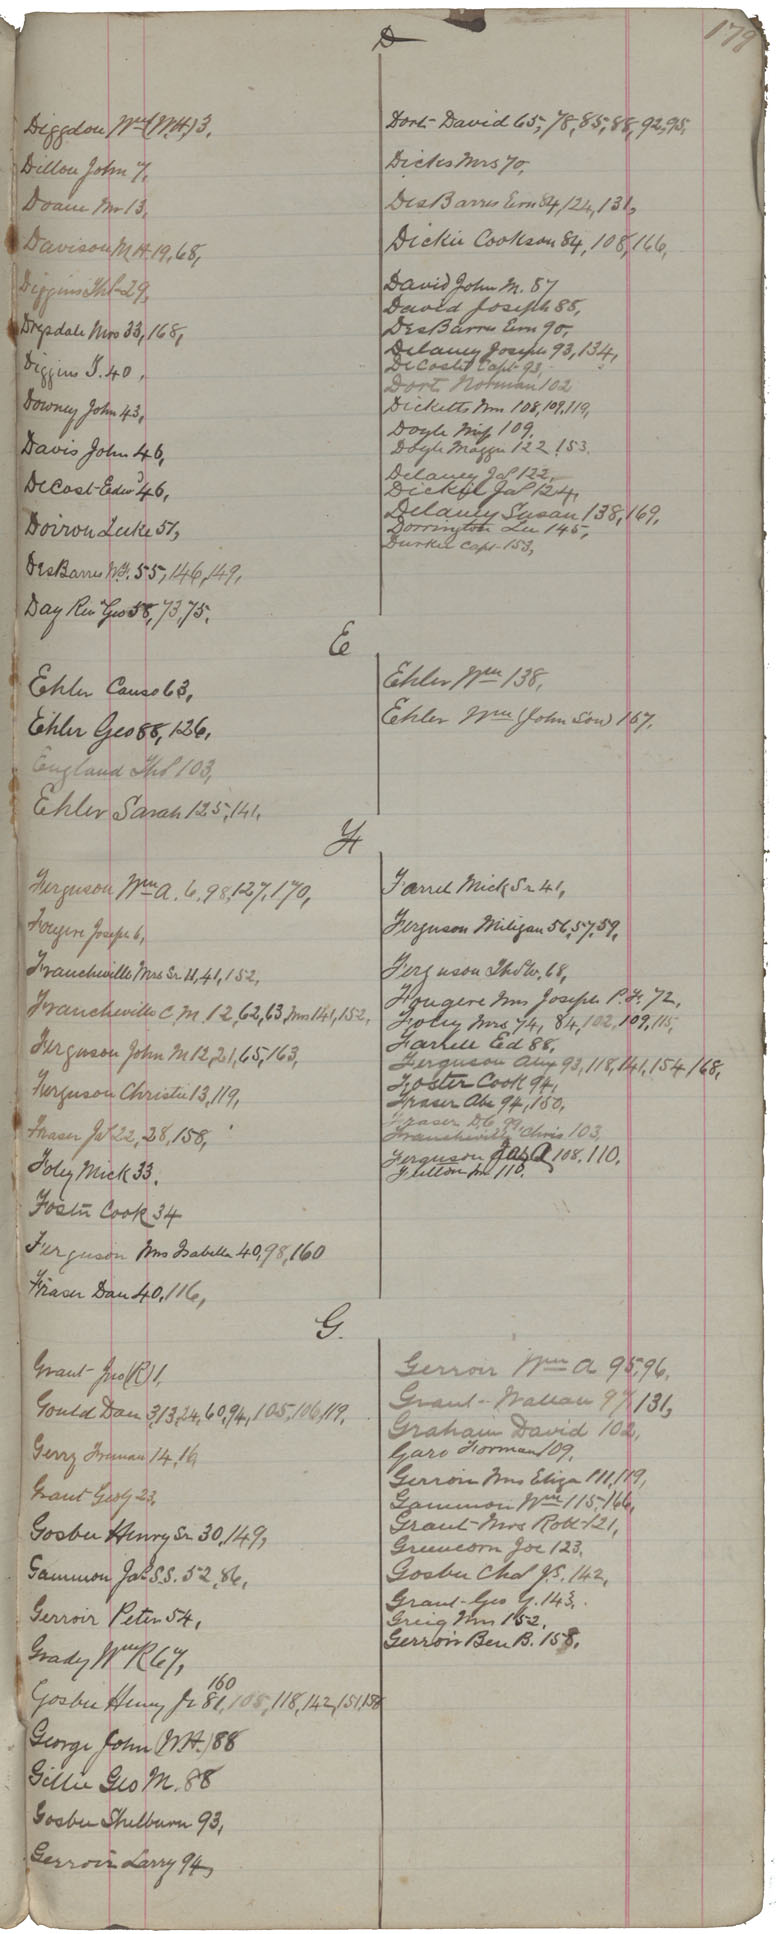 D
179
Diggdon Wm (W.H.) 3,
Dillon John 7,
Doane Mr 13,
Davison M H 19, 68,
Diggins Thos 29,
Drysdale Mrs 33, 168,
Diggins J. 40,
Downey John 43,
Davis John 46,
DeCost Edwd 46,
Doiron Luke 51,
DesBarres W.F. 55, 146, 149,
Day Rev Geo 58, 73, 75,
Dort David 65, 78, 85, 88, 92, 95,
Dicks Mrs 70,
DesBarres Ern 84, 124, 131,
Dickie Cookson 84, 108, 166,
David John M. 87
David Joseph 88,
DesBarres Ern 90,
Delaney Joseph 93, 134,
DeCoste Capt 93,
Dort Norman 102
Dicketts Wm 108, 109, 119,
Doyle Miss 109,
Doyle Maggie 122, 153.
Delaney Jas 122,
Dickie Jas 124,
Delaney Susan 138, 169,
Dorrington Lee 145,
Durkee Capt 153,
E
Ehler Canso 63,
Ehler Geo 88, 126,
England Thos 103,
Ehler Sarah 125, 141,
Ehler Wm 138,
Ehler Wm (John Son) 167,
F
Ferguson Wm A. 6, 98, 127, 170,
Fougere Joseph 6,
Francheville Mrs Sr 11, 41, 152,
Francheville C. M. 12, 62, 63, Mrs 141, 152,
Ferguson John M 12, 21, 65, 163,
Ferguson Christie 13, 119,
Fraser Jas 22, 28, 158,
Foley Mick 33.
Foster Cook 34
Ferguson Mrs Isabella 40, 98, 160
Fraser Dan 40, 116,
Farrel Mick Sr 41,
Ferguson Miligan 56, 57, 59,
Ferguson Thos W. 68,
Fougere Mrs Joseph P. F. 72,
Foley Mrs 74, 84, 102, 109, 115,
Farrell Ed 88,
Ferguson Alex 93, 118, 141, 154, 168,
Foster Cook 94,
Fraser Abe 94, 150,
Fraser D. C. 99,
Francheville Chris 103,
Ferguson Jas A 108, 110,
Fulton Mr 110.
G.
Grant Jno (R) 1,
Gould Dan 3, 13, 24, 60, 94, 105, 106, 119,
Gerry Freeman 14, 16
Grant Geo Y 23,
Gosbee Henry Sr 30, 149,
Gammon Jas S.S. 52, 86,
Gerroir Peter 54,
Grady Wm R 67,
160
Gosbee Henry Jr 81, 108, 118, 142, 151, 158
George John (W.H.) 88
Gillie Geo M. 88
Gosbee Shelburn 93,
Gerroir Larry 94,
Gerroir Wm A 95, 96,
Grant Wallace 97, 131,
Graham David 102,
Garo Forman 109,
Gerroir Mrs Eliza P 111, 119,
Gammon Wm 115, 166,
Grant Mrs Robt 121,
Greencorn Joe 123,
Gosbee Chas J.S. 142,
Grant Geo Y. 143,
Greig Wm 152,
Gerroir Ben B. 158,